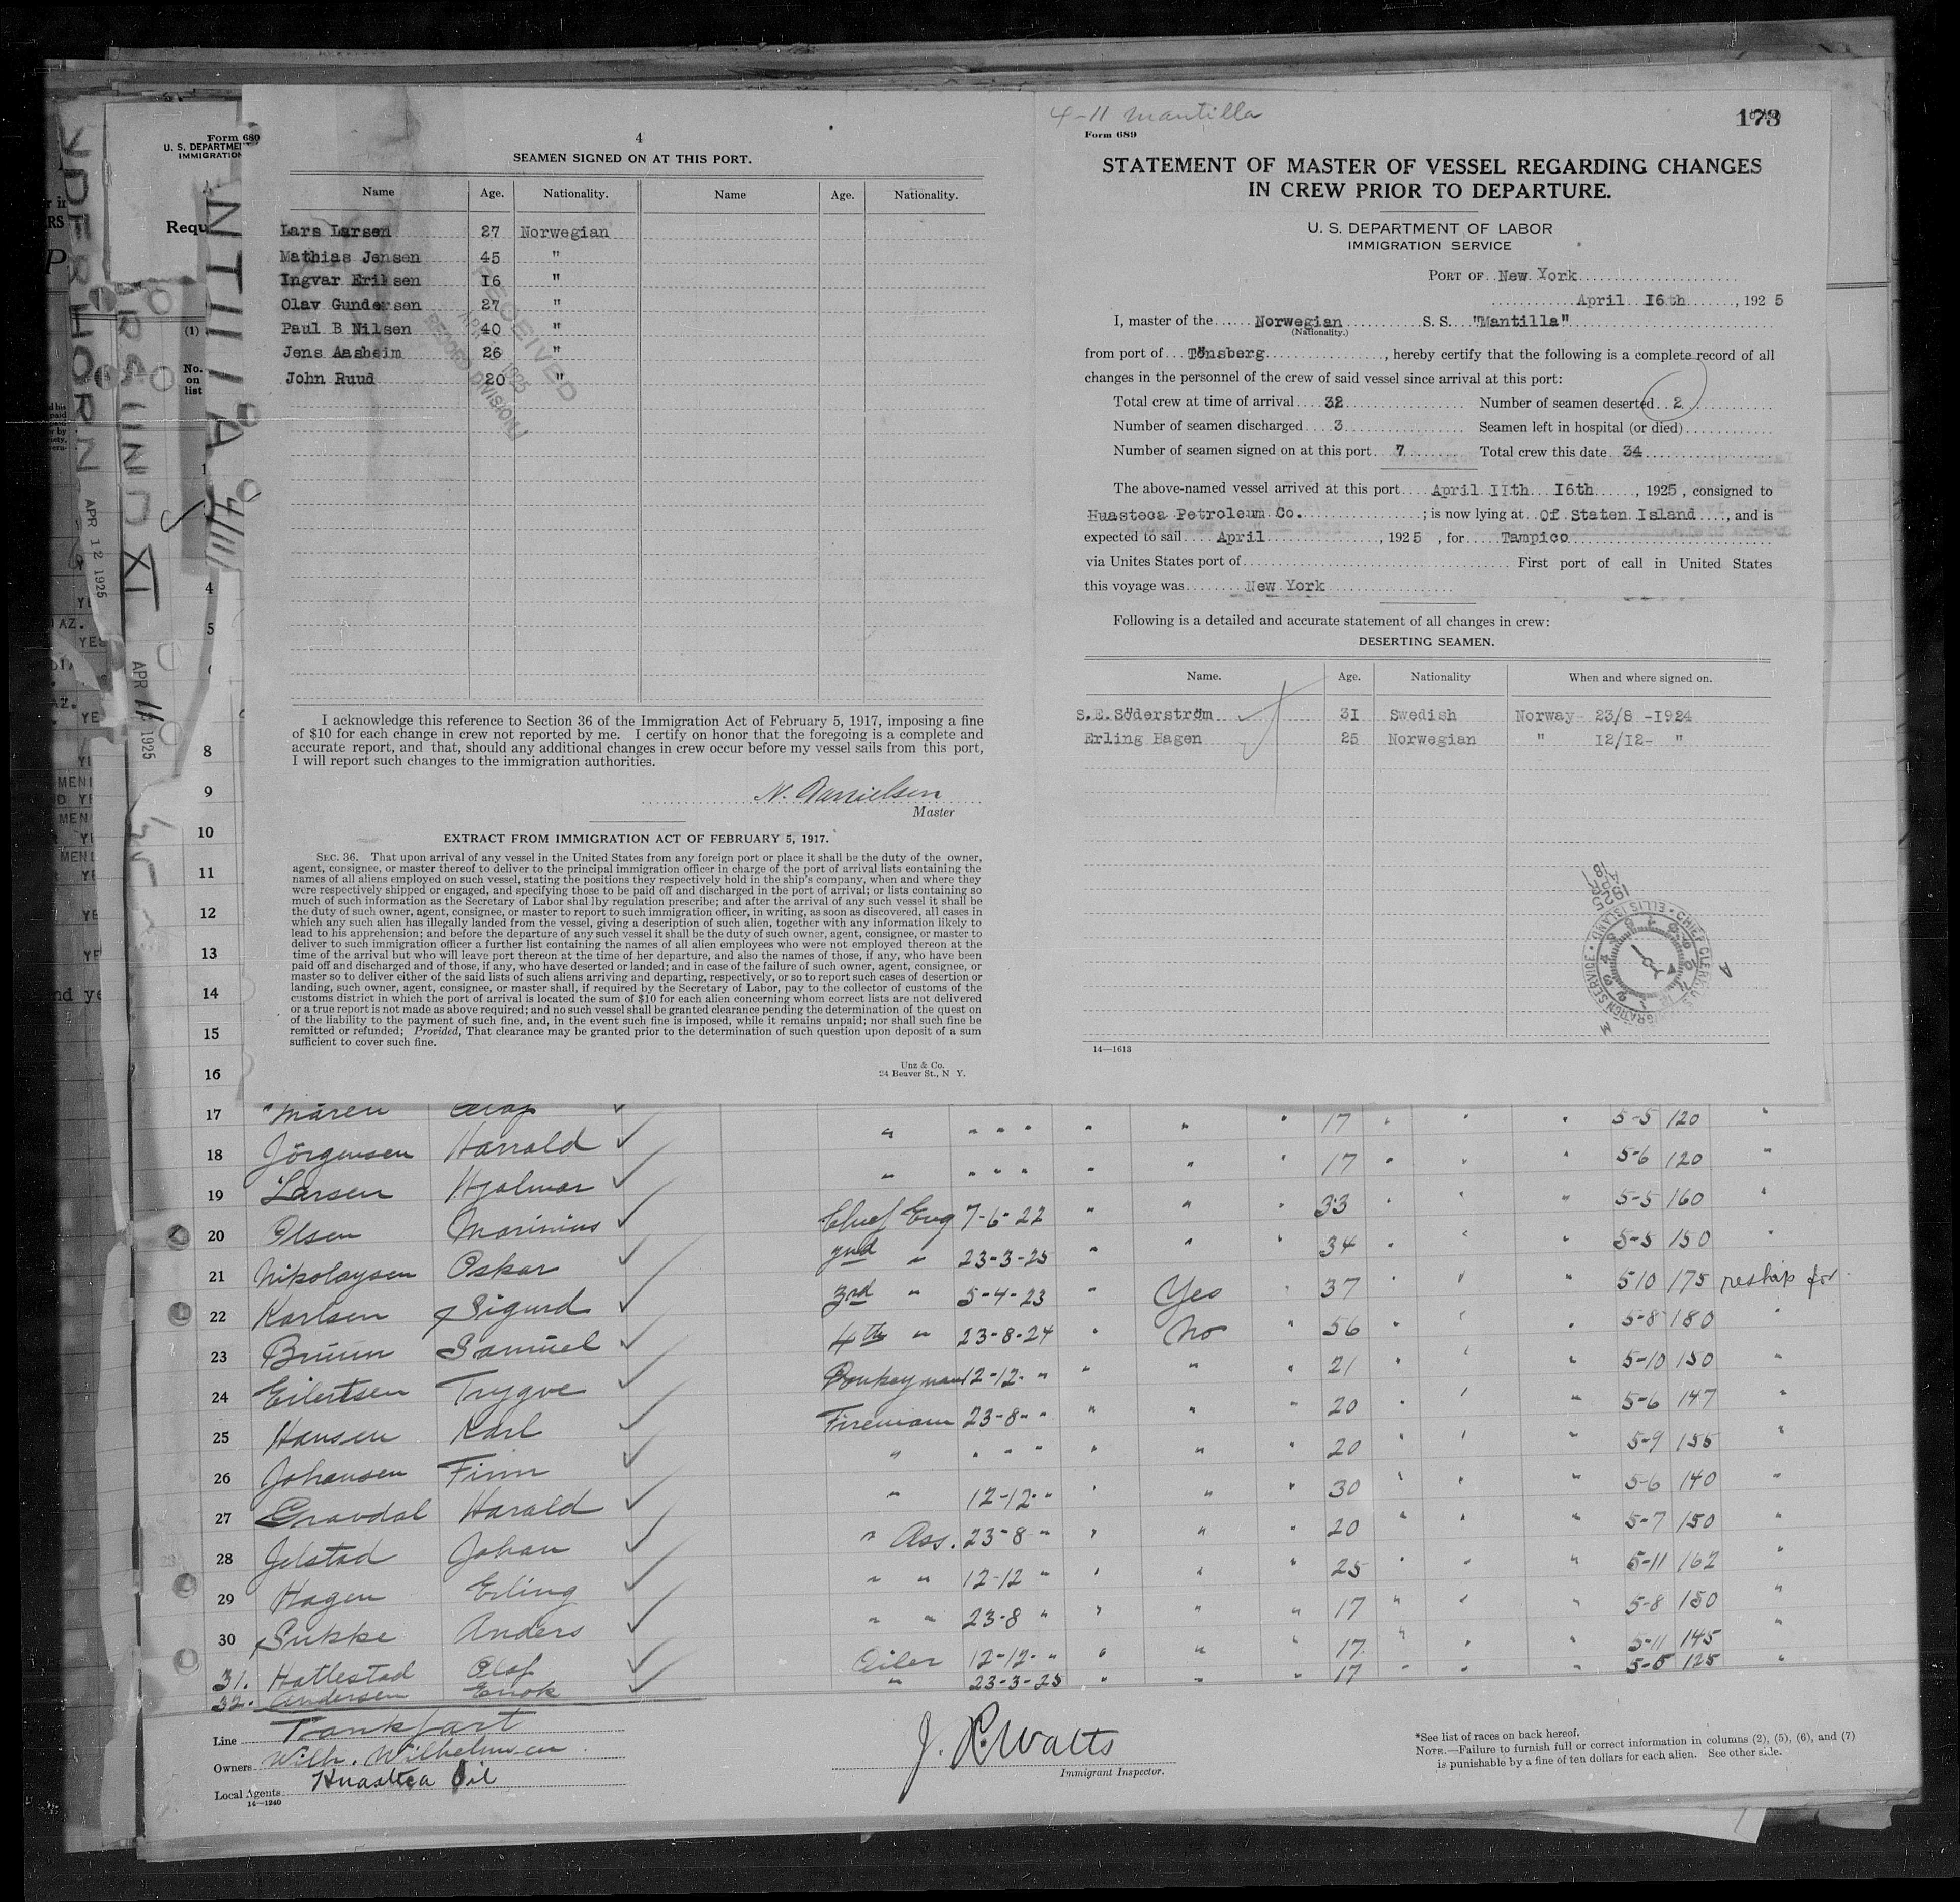 4
SEAMEN SIGNED ON AT THIS PORT.
Name Age. Nationality. Name Age. Nationality.
Lars Larsen 27 Norwegian
Mathias Jensen 45 "
Ingvar Eriksen 16 "
Olav Gundersen 27 "
Paul B Nilsen 40 "
Jens Aasheim 26 "
John Ruud 20 "
RECEIVED
1925
RECORD DIVISION
I acknowledge this reference to Section 36 of the Immigration Act of February 5, 1917, imposing a fine
of $10 for each change in crew not reported by me. I certify on honor that the foregoing is a complete and
accurate report, and that, should any additional changes in crew occur before my vessel sails from this port,
I will report such changes to the immigration authorities.
N. Danielsen
Master
EXTRACT FROM IMMIGRATION ACT OF FEBRUARY 5, 1917.
SEC. 36. That upon arrival of any vessel in the United States from any foreign port or place it shall be the duty of the owner,
agent, consignee, or master thereof to deliver to the principal immigration officer in charge of the port of arrival lists containing the
names of all aliens employed on such vessel, stating the positions they respectively hold in the ship's company, when and where they
were respectively shipped or engaged, and specifying those to be paid off and discharged in the port of arrival; or lists containing so
much of such information as the Secretary of Labor shal lby regulation prescribe; and after the arrival of any such vessel it shall be
the duty of such owner, agent, consignee, or master to report to such immigration officer, in writing, as soon as discovered, all cases in
which any such alien has illegally landed from the vessel, giving a description of such alien, together with any information likely to
lead to his apprehension; and before the departure of any such vessel it shall be the duty of such owner, agent, consignee, or master to
deliver to such immigration officer a further list containing the names of all alien employees who were not employed thereon at the
time of the arrival but who will leave port thereon at the time of her departure, and also the names of those, if any, who have been
paid off and discharged and of those, if any, who have deserted or landed; and in case of the failure of such owner, agent, consignee, or
master so to deliver either of the said lists of such aliens arriving and departing, respectively, or so to report such cases of desertion or
landing, such owner, agent, consignee, or master shall, if required by the Secretary of Labor, pay to the collector of customs of the
customs district in which the port of arrival is located the sum of $10 for each alien concerning whom correct lists are not delivered
or a true report is not made as above required; and no such vessel shall be granted clearance pending the determination of the quest on
of the liability to the payment of such fine, and, in the event such fine is imposed, while it remains unpaid; nor shall such fine be
remitted or refunded; Provided, That clearance may be granted prior to the determination of such question upon deposit of a sum
sufficient to cover such fine.
Unz & Co.
24 Beaver St., N Y.
4-11 Mantilla
173
Form 689
STATEMENT OF MASTER OF VESSEL REGARDING CHANGES
IN CREW PRIOR TO DEPARTURE.
U. S. DEPARTMENT OF LABOR
IMMIGRATION SERVICE
PORT OF New York
April 16th , 192 5
I, master of the Norwegian S. S. "Mantilla"
(Nationality.)
from port of Tönsberg , hereby certify that the following is a complete record of all
changes in the personnel of the crew of said vessel since arrival at this port:
Total crew at time of arrival 32 Number of seamen deserted 2
Number of seamen discharged 3 Seamen left in hospital (or died)
Number of seamen signed on at this port 7 Total crew this date 34
The above-named vessel arrived at this port April 11th 16th , 1925 , consigned to
Huasteca Petroleum Co. ; is now lying at Of Staten Island , and is
expected to sail April , 192 5 , for Tampico
via Unites States port of First port of call in United States
this voyage was New York
Following is a detailed and accurate statement of all changes in crew:
DESERTING SEAMEN.
Name. Age. Nationality When and where signed on.
S.E.Söderström 31 Swedish Norway- 23/8 -1924
Erling Hagen 25 Norwegian " 12/12- "
CHIEF CLERK U.S. IMMIGRATION SERVICE ELLIS ISLAND
1925
14—1613
Form 680
U. S. DEPARTME
IMMIGRATION
Requ
(1)
No.
on
list
APR 12 1925
APR 11 1925
XI
4
5
8
9
10
11
12
13
14
15
16
17 Maren Olaf 17 5-5 120
18 Jörgensen Harrald " " " " 17 5-6 120
19 Larsen Hjalmar " " " " 33 5-5 160
20 Olsen Marinius Chief Eng 7-6-22 34 5-5 150
21 Nikolaysen Oskar 2nd " 23-3-25 37 5 10 175 reship for
22 Karlsen Sigurd 3rd " 5-4-23 Yes 56 5-8 180
23 Bruun Samuel 4th " 23-8-24 No 21 5-10 150
24 Eilertsen Trygve Donkeyman 12-12- " 20 5-6 147
25 Hansen Karl Fireman 23-8- " 20 5-9 155
26 Johansen Finn " " " " 30 5-6 140
27 Gravdal Harald " 12-12- " 20 5-7 150
28 Jelstad Johan " Ass. 23-8 " 25 5-11 162
29 Hagen Erling " " 12-12 " 17 5-8 150
30 Sukke Anders " " 23-8 " 17 5-11 145
31. Hatlestad Olaf Oiler 12-12- " 17 5-5 125
32. Andersen Enok " 23-3-25
Line Tankfart
Owners Wilh. Wilhelmsen
Local Agents Huasteca Oil
14—1240
J. R. Watts
Immigrant Inspector.
*See list of races on back hereof.
NOTE.—Failure to furnish full or correct information in columns (2), (5), (6), and (7)
is punishable by a fine of ten dollars for each alien. See other side.